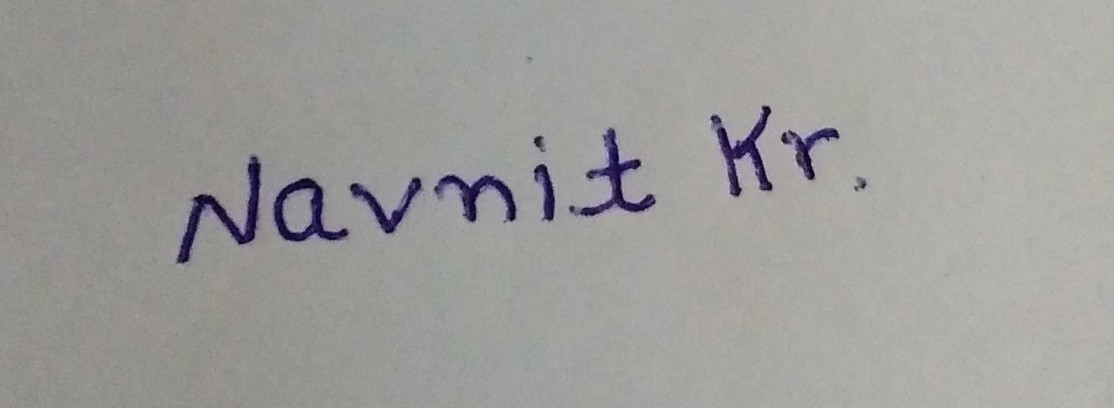 Navnit Kr.